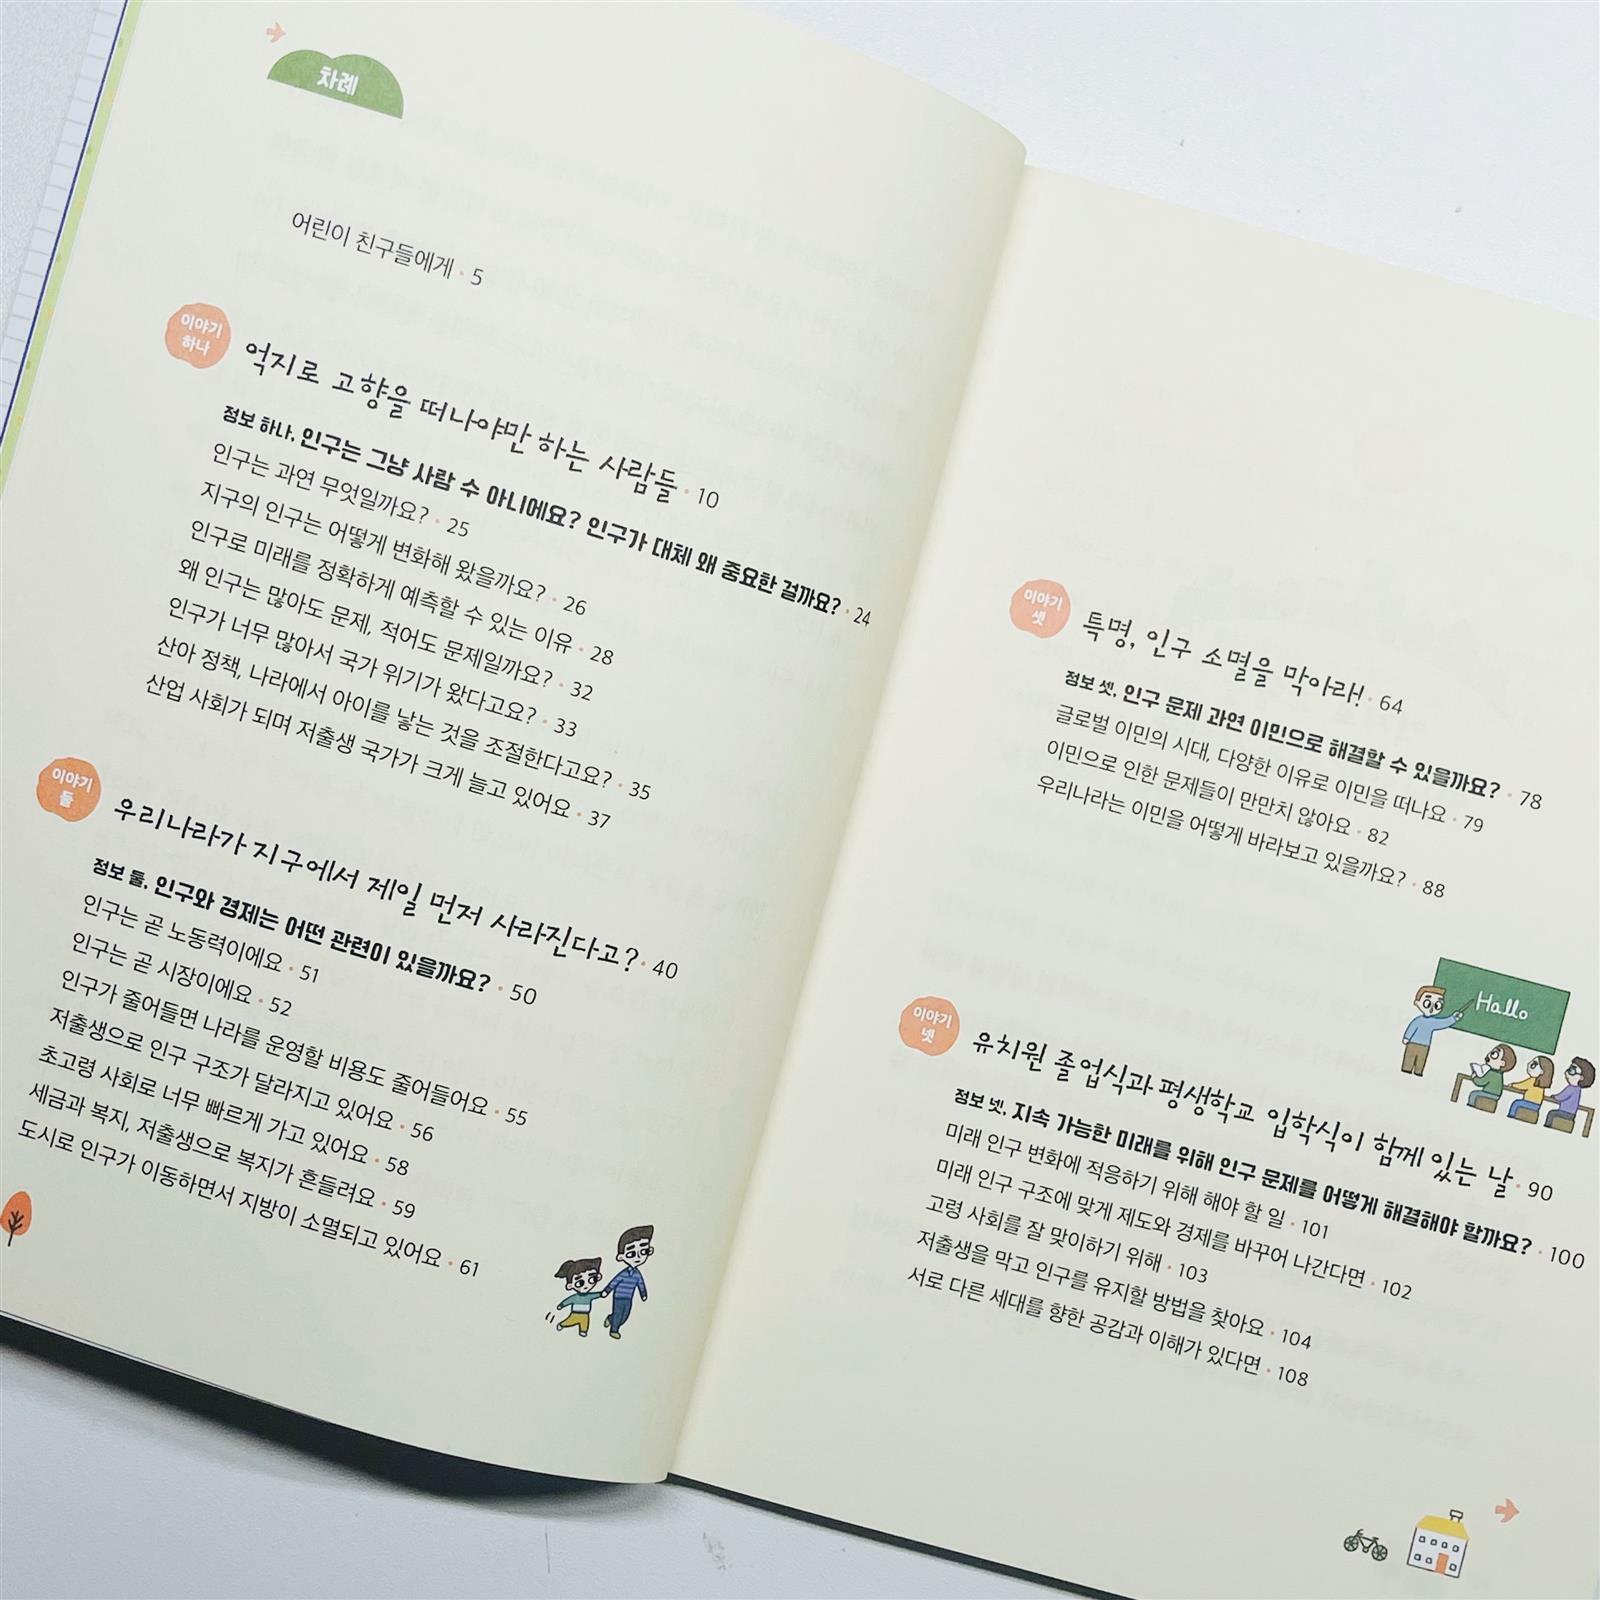 차례
어린이 친구들에게 · 5
이야기
하나
억지로 고향을 떠나야만 하는 사람들 · 10
정보 하나, 인구는 그냥 사람 수 아니에요? 인구가 대체 왜 중요한 걸까요? · 24
인구는 과연 무엇일까요? · 25
지구의 인구는 어떻게 변화해 왔을까요? · 26
인구로 미래를 정확하게 예측할 수 있는 이유 · 28
왜 인구는 많아도 문제, 적어도 문제일까요? · 32
인구가 너무 많아서 국가 위기가 왔다고요? · 33
산아 정책, 나라에서 아이를 낳는 것을 조절한다고요? · 35
산업 사회가 되며 저출생 국가가 크게 늘고 있어요 · 37
이야기
둘
우리나라가 지구에서 제일 먼저 사라진다고? · 40
정보 둘, 인구와 경제는 어떤 관련이 있을까요? · 50
인구는 곧 노동력이에요 · 51
인구는 곧 시장이에요 · 52
인구가 줄어들면 나라를 운영할 비용도 줄어들어요 · 55
저출생으로 인구 구조가 달라지고 있어요 · 56
초고령 사회로 너무 빠르게 가고 있어요 · 58
세금과 복지, 저출생으로 복지가 흔들려요 · 59
도시로 인구가 이동하면서 지방이 소멸되고 있어요 · 61
이야기
셋
특명, 인구 소멸을 막아라! · 64
정보 셋, 인구 문제 과연 이민으로 해결할 수 있을까요? · 78
글로벌 이민의 시대, 다양한 이유로 이민을 떠나요 · 79
이민으로 인한 문제들이 만만치 않아요 · 82
우리나라는 이민을 어떻게 바라보고 있을까요? · 88
Hallo
이야기
넷
유치원 졸업식과 평생학교 입학식이 함께 있는 날 · 90
정보 넷, 지속 가능한 미래를 위해 인구 문제를 어떻게 해결해야 할까요? · 100
미래 인구 변화에 적응하기 위해 해야 할 일 · 101
미래 인구 구조에 맞게 제도와 경제를 바꾸어 나간다면 · 102
고령 사회를 잘 맞이하기 위해 · 103
저출생을 막고 인구를 유지할 방법을 찾아요 · 104
서로 다른 세대를 향한 공감과 이해가 있다면 · 108